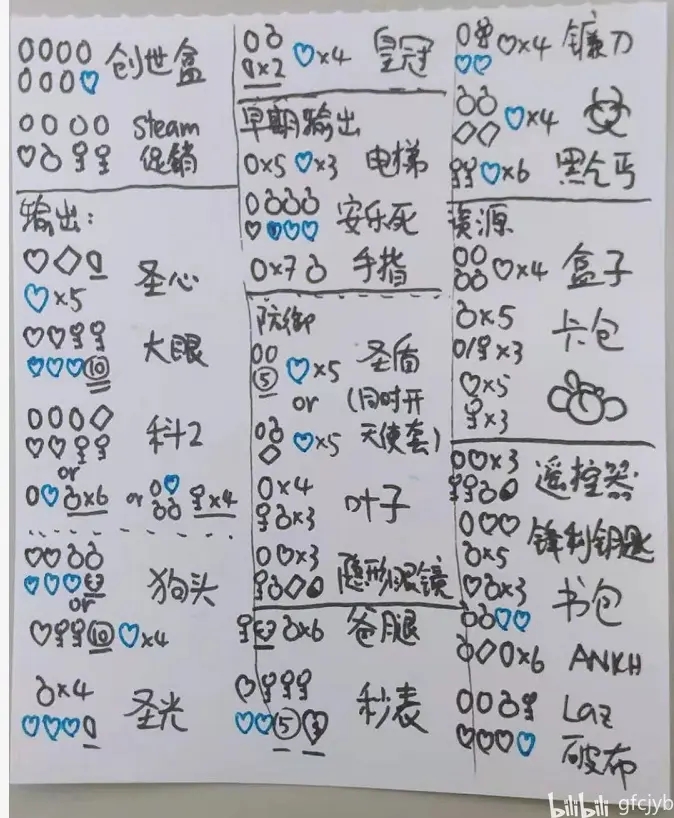 创世盒
steam
促销
输出:
圣心
×5
大眼
10
科2
or
×6 or ×4
狗头
or
10 ×4
×4 圣光
×2 ×4 皇冠
早期输出
×5 ×3 电梯
安乐死
×7 手指
防御
5 ×5 圣盾
or (同时开
×5 天使套)
×4 叶子
×3
×3 隐形眼镜
×6 爸腿
秒表
5
×4 镰刀
×4
×6 黑乞丐
资源
×4 盒子
×5 卡包
/ ×3
×5
×3
×3 遥控器
锋利钥匙
×5
×3 书包
×6 ANKH
Laz
破布
bilibili gfcjyb